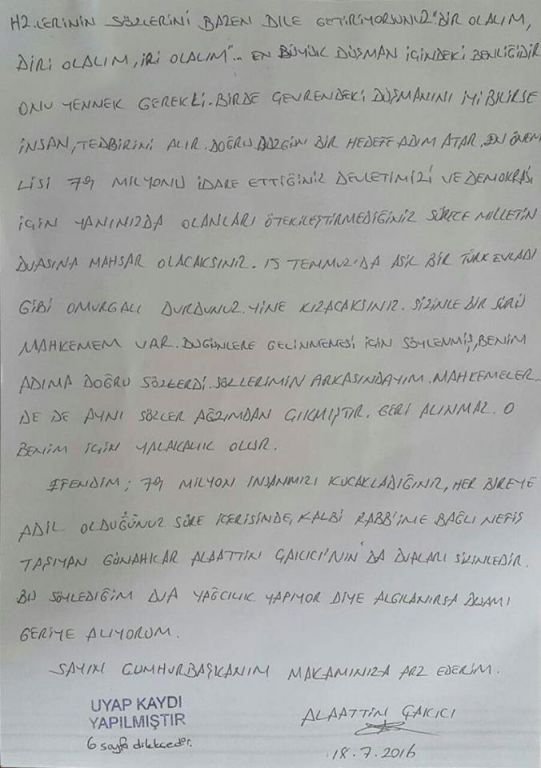 HZ.LERİNİN SÖZLERİNİ BAZEN DİLE GETİRİYORSUNUZ "BİR OLALIM,
DİRİ OLALIM, İRİ OLALIM"... EN BÜYÜK DÜŞMAN İÇİNDEKİ BENLİĞİDİR
ONU YENMEK GEREKLİ. BİRDE ÇEVRENDEKİ DÜŞMANINI İYİ BİLİRSE
İNSAN, TEDBİRİNİ ALIR. DOĞRU DÜZGÜN BİR HEDEFE ADIM ATAR. EN ÖNEM
LİSİ 79 MİLYONU İDARE ETTİĞİNİZ DEVLETİMİZİ VE DEMOKRASİ
İÇİN YANINIZDA OLANLARI ÖTEKİLEŞTİRMEDİĞİNİZ SÜRECE MİLLETİN
DUASINA MAHSAR OLACAKSINIZ. 15 TEMMUZ'DA ASİL BİR TÜRK EVLADI
GİBİ OMURGALI DURDUNUZ. YİNE KIZACAKSINIZ. SİZİNLE BİR SÜRÜ
MAHKEMEM VAR. BUGÜNLERE GELİNMEMESİ İÇİN SÖYLENMİŞ, BENİM
ADIMA DOĞRU SÖZLERDİ. SÖZLERİMİN ARKASINDAYIM. MAHKEMELER
DE DE AYNI SÖZLER AĞZIMDAN ÇIKMIŞTIR. GERİ ALINMAZ. O
BENİM İÇİN YALAKALIK OLUR.
EFENDİM; 79 MİLYON İNSANIMIZI KUCAKLADIĞINIZ, HER BİREYE
ADİL OLDUĞUNUZ SÜRE İÇERİSİNDE, KALBİ RABB'İME BAĞLI NEFİS
TAŞIYAN GÜNAHKAR ALAATTİN ÇAKICI'NIN DA DUALARI SİZİNLEDİR.
BU SÖYLEDİĞİM DUA YAĞCILIK YAPIYOR DİYE ALGILANIRSA DUAMI
GERİYE ALIYORUM.
SAYIN CUMHURBAŞKANIM MAKAMINIZA ARZ EDERİM.
UYAP KAYDI
YAPILMIŞTIR
6 sayfa dilekçedir.
ALAATTİN ÇAKICI
18.7.2016